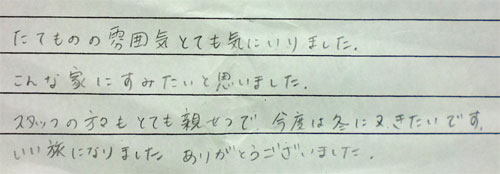 たてものの雰囲気とても気にいりました.
こんな家にすみたいと思いました.
スタッフの方々もとても親せつで、今度は冬に又きたいです.
いい旅になりました ありがとうございました.